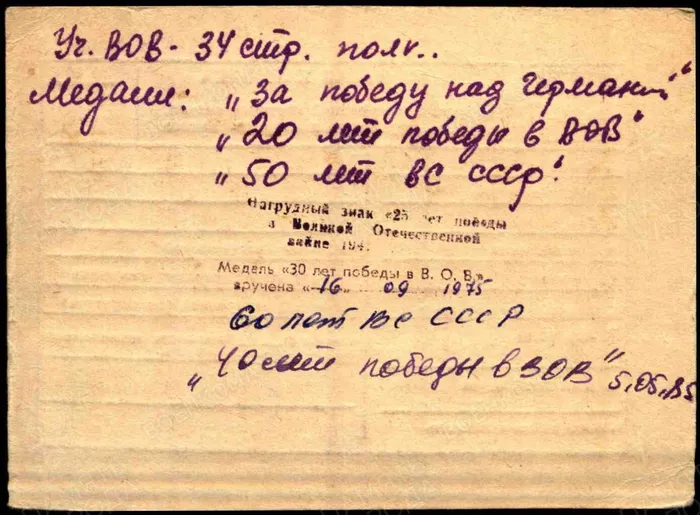 Уч. ВОВ - 34 стр. полк..
Медали: „За победу над Германией"
„20 лет победы в ВОВ"
„50 лет ВС СССР".
Нагрудный знак «25 лет победы
в Великой Отечественной
войне 194
Медаль «30 лет победы в В. О. В.»
вручена «16» 09 1975
60 лет ВС СССР
„40 лет победы в ВОВ" 5,05,85